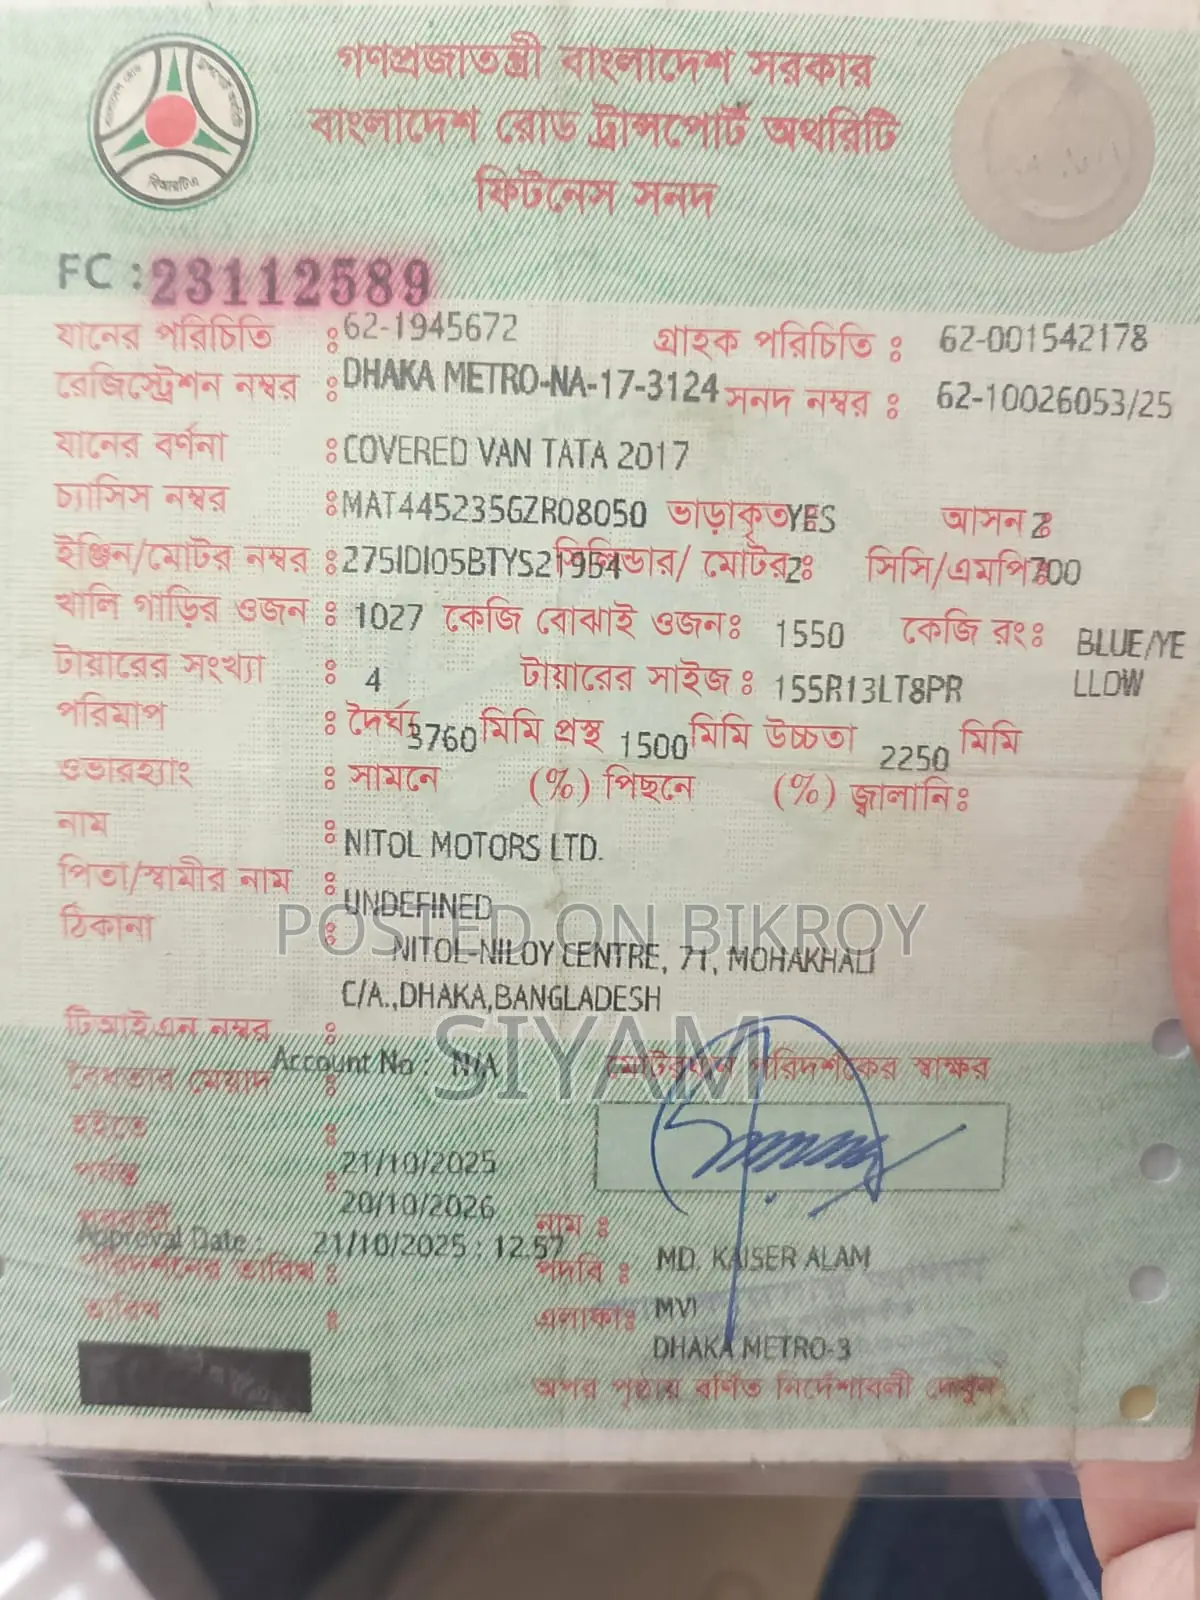 গণপ্রজাতন্ত্রী বাংলাদেশ সরকার
বাংলাদেশ রোড ট্রান্সপোর্ট অথরিটি
ফিটনেস সনদ
বিআরটিএ
FC : 23112589
যানের পরিচিতি : 62-1945672 গ্রাহক পরিচিতি : 62-001542178
রেজিস্ট্রেশন নম্বর : DHAKA METRO-NA-17-3124 সনদ নম্বর : 62-10026053/25
যানের বর্ণনা : COVERED VAN TATA 2017
চ্যাসিস নম্বর : MAT445235GZR08050 ভাড়াকৃতঃ YES আসন : 2
ইঞ্জিন/মোটর নম্বর : 275IDI05BTYS21954 সিলিন্ডার/ মোটরঃ 2 সিসি/এমপিঃ 700
খালি গাড়ির ওজন : 1027 কেজি বোঝাই ওজনঃ 1550 কেজি রংঃ BLUE/YE
LLOW
টায়ারের সংখ্যা : 4 টায়ারের সাইজ : 155R13LT8PR
পরিমাপ : দৈর্ঘ্য 3760 মিমি প্রস্থ 1500 মিমি উচ্চতা 2250 মিমি
ওভারহ্যাং : সামনে (%) পিছনে (%) জ্বালানি :
নাম : NITOL MOTORS LTD.
পিতা/স্বামীর নাম : UNDEFINED
POSTED ON BIKROY
ঠিকানা : NITOL-NILOY CENTRE, 71, MOHAKHALI
C/A.,DHAKA,BANGLADESH
SIYAM
টিআইএন নম্বর :
Account No : N/A
বৈধতার মেয়াদ : মোটরযান পরিদর্শকের স্বাক্ষর
হইতে : 21/10/2025
পর্যন্ত : 20/10/2026
পরবর্তী
Approval Date : 21/10/2025 : 12.57
পরিদর্শনের তারিখ :
তারিখ :
নাম : MD. KAISER ALAM
পদবি : MVI
এলাকাঃ DHAKA METRO-3
অপর পৃষ্ঠায় বর্ণিত নির্দেশাবলী দেখুন